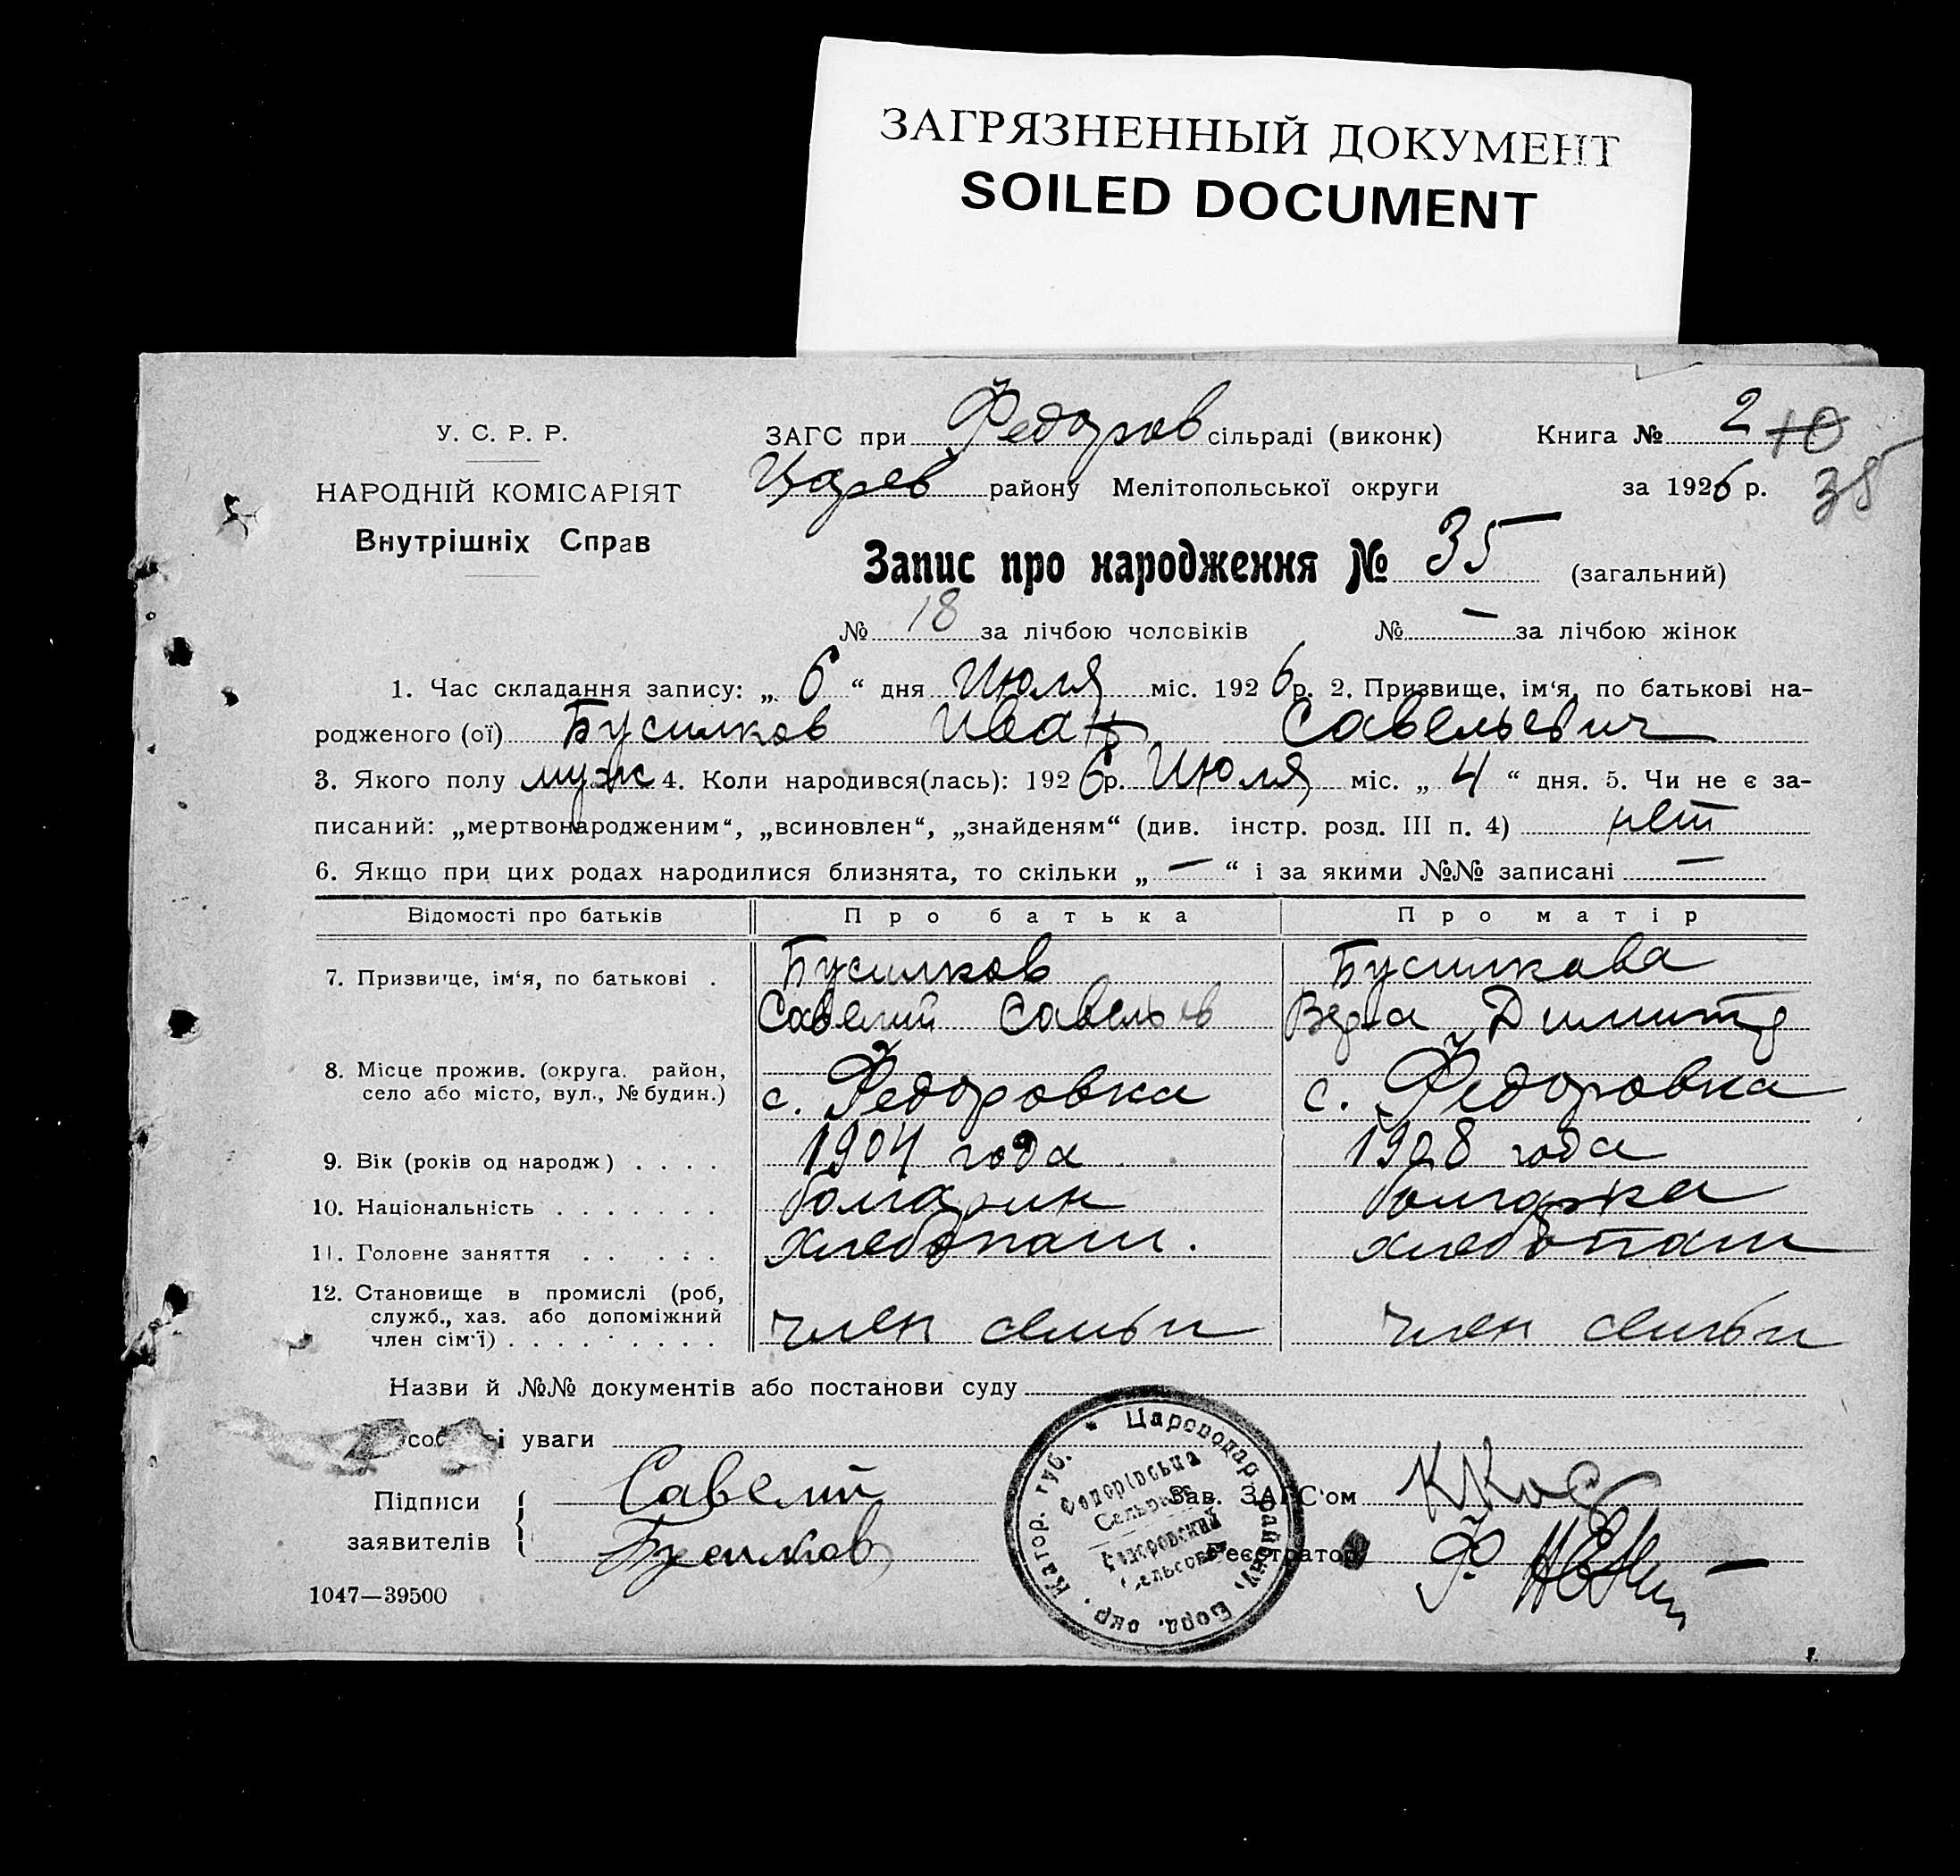 ЗАГРЯЗНЕННЫЙ ДОКУМЕНТ
SOILED DOCUMENT
У. С. Р. Р.
НАРОДНІЙ КОМІСАРІЯТ
Внутрішніх Справ
ЗАГС при Федоров сільраді (виконк) Книга № 2 10
Царев району Мелітопольської округи за 1926 р. 38
Запис про народження № 35 (загальний)
№ 18 за лічбою чоловіків № — за лічбою жінок
1. Час складання запису: „ 6 “ дня Июля міс. 1926 р. 2. Призвище, ім‘я, по батькові на-
родженого (ої) Бусилков Иван Савельевич
3. Якого полу муж 4. Коли народився(лась): 1926 р. Июля міс. „ 4 “ дня. 5. Чи не є за-
писаний: „мертвонародженим“, „всиновлен“, „знайденям“ (див. інстр. розд. III п. 4) нет
6. Якщо при цих родах народилися близнята, то скільки „ — “ і за якими №№ записані —
Відомості про батьків Про батька Про матір
7. Призвище, ім‘я, по батькові . Бусилков Бусилкава
Савелий Савельев Вера Димитр
8. Місце прожив. (округа. район,
село або місто, вул., № будин.) с. Федоровка с. Федоровка
9. Вік (років од народж) . . . . 1904 года 1908 года
10. Національність . . . . . . . болгарин болгарка
11. Головне заняття . . . . . . хлебопаш. хлебопаш
12. Становище в промислі (роб,
служб., хаз. або допоміжний
член сім‘ї) . . . . . . . . . член семьи член семьи
Назви й №№ документів або постанови суду
уваги
Підписи Савелий Зав. ЗАГС‘ом
заявителів Бусилков Реєстратор
1047—39500
Цареводар. району, Берд. окр. Катер. губ.
Федорівська
Сельрада
Федоровский
Сельсовет